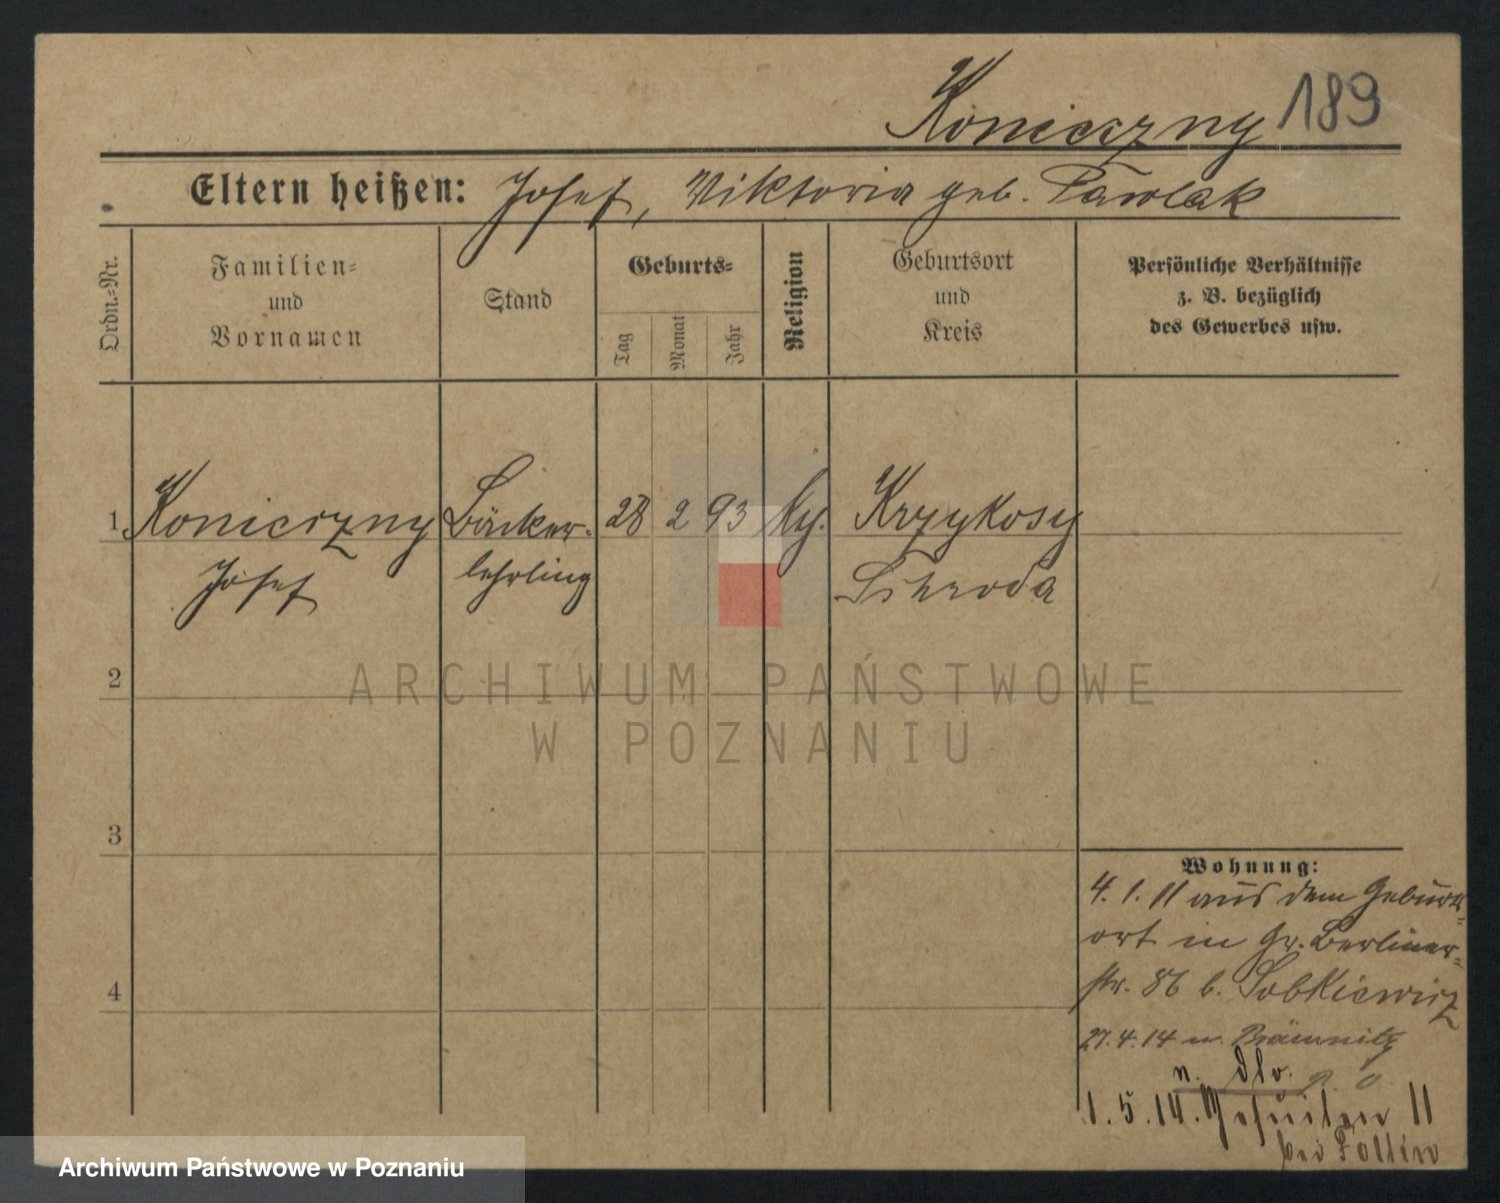 Konieczny 189
Eltern heißen: Josef, Viktoria geb. Pawlak
Ordn.-Nr.
Familien-
und
Vornamen
Stand
Geburts-
Tag
Monat
Jahr
Religion
Geburtsort
und
Kreis
Persönliche Verhältnisse
z. B. bezüglich
des Gewerbes usw.
1. Konieczny Bäcker- 28 2 93 Krzykosy
Josef lehrling Schroda
2
3
4
ARCHIWUM PAŃSTWOWE
W POZNANIU
Wohnung:
4. 1. 11 aus dem Geburts-
ort in Gr. Berliner-
str. 86 b. Sobkiewicz
27.4.14 n.
n.
1.5.14. Jesuiten 11
bei
Archiwum Państwowe w Poznaniu